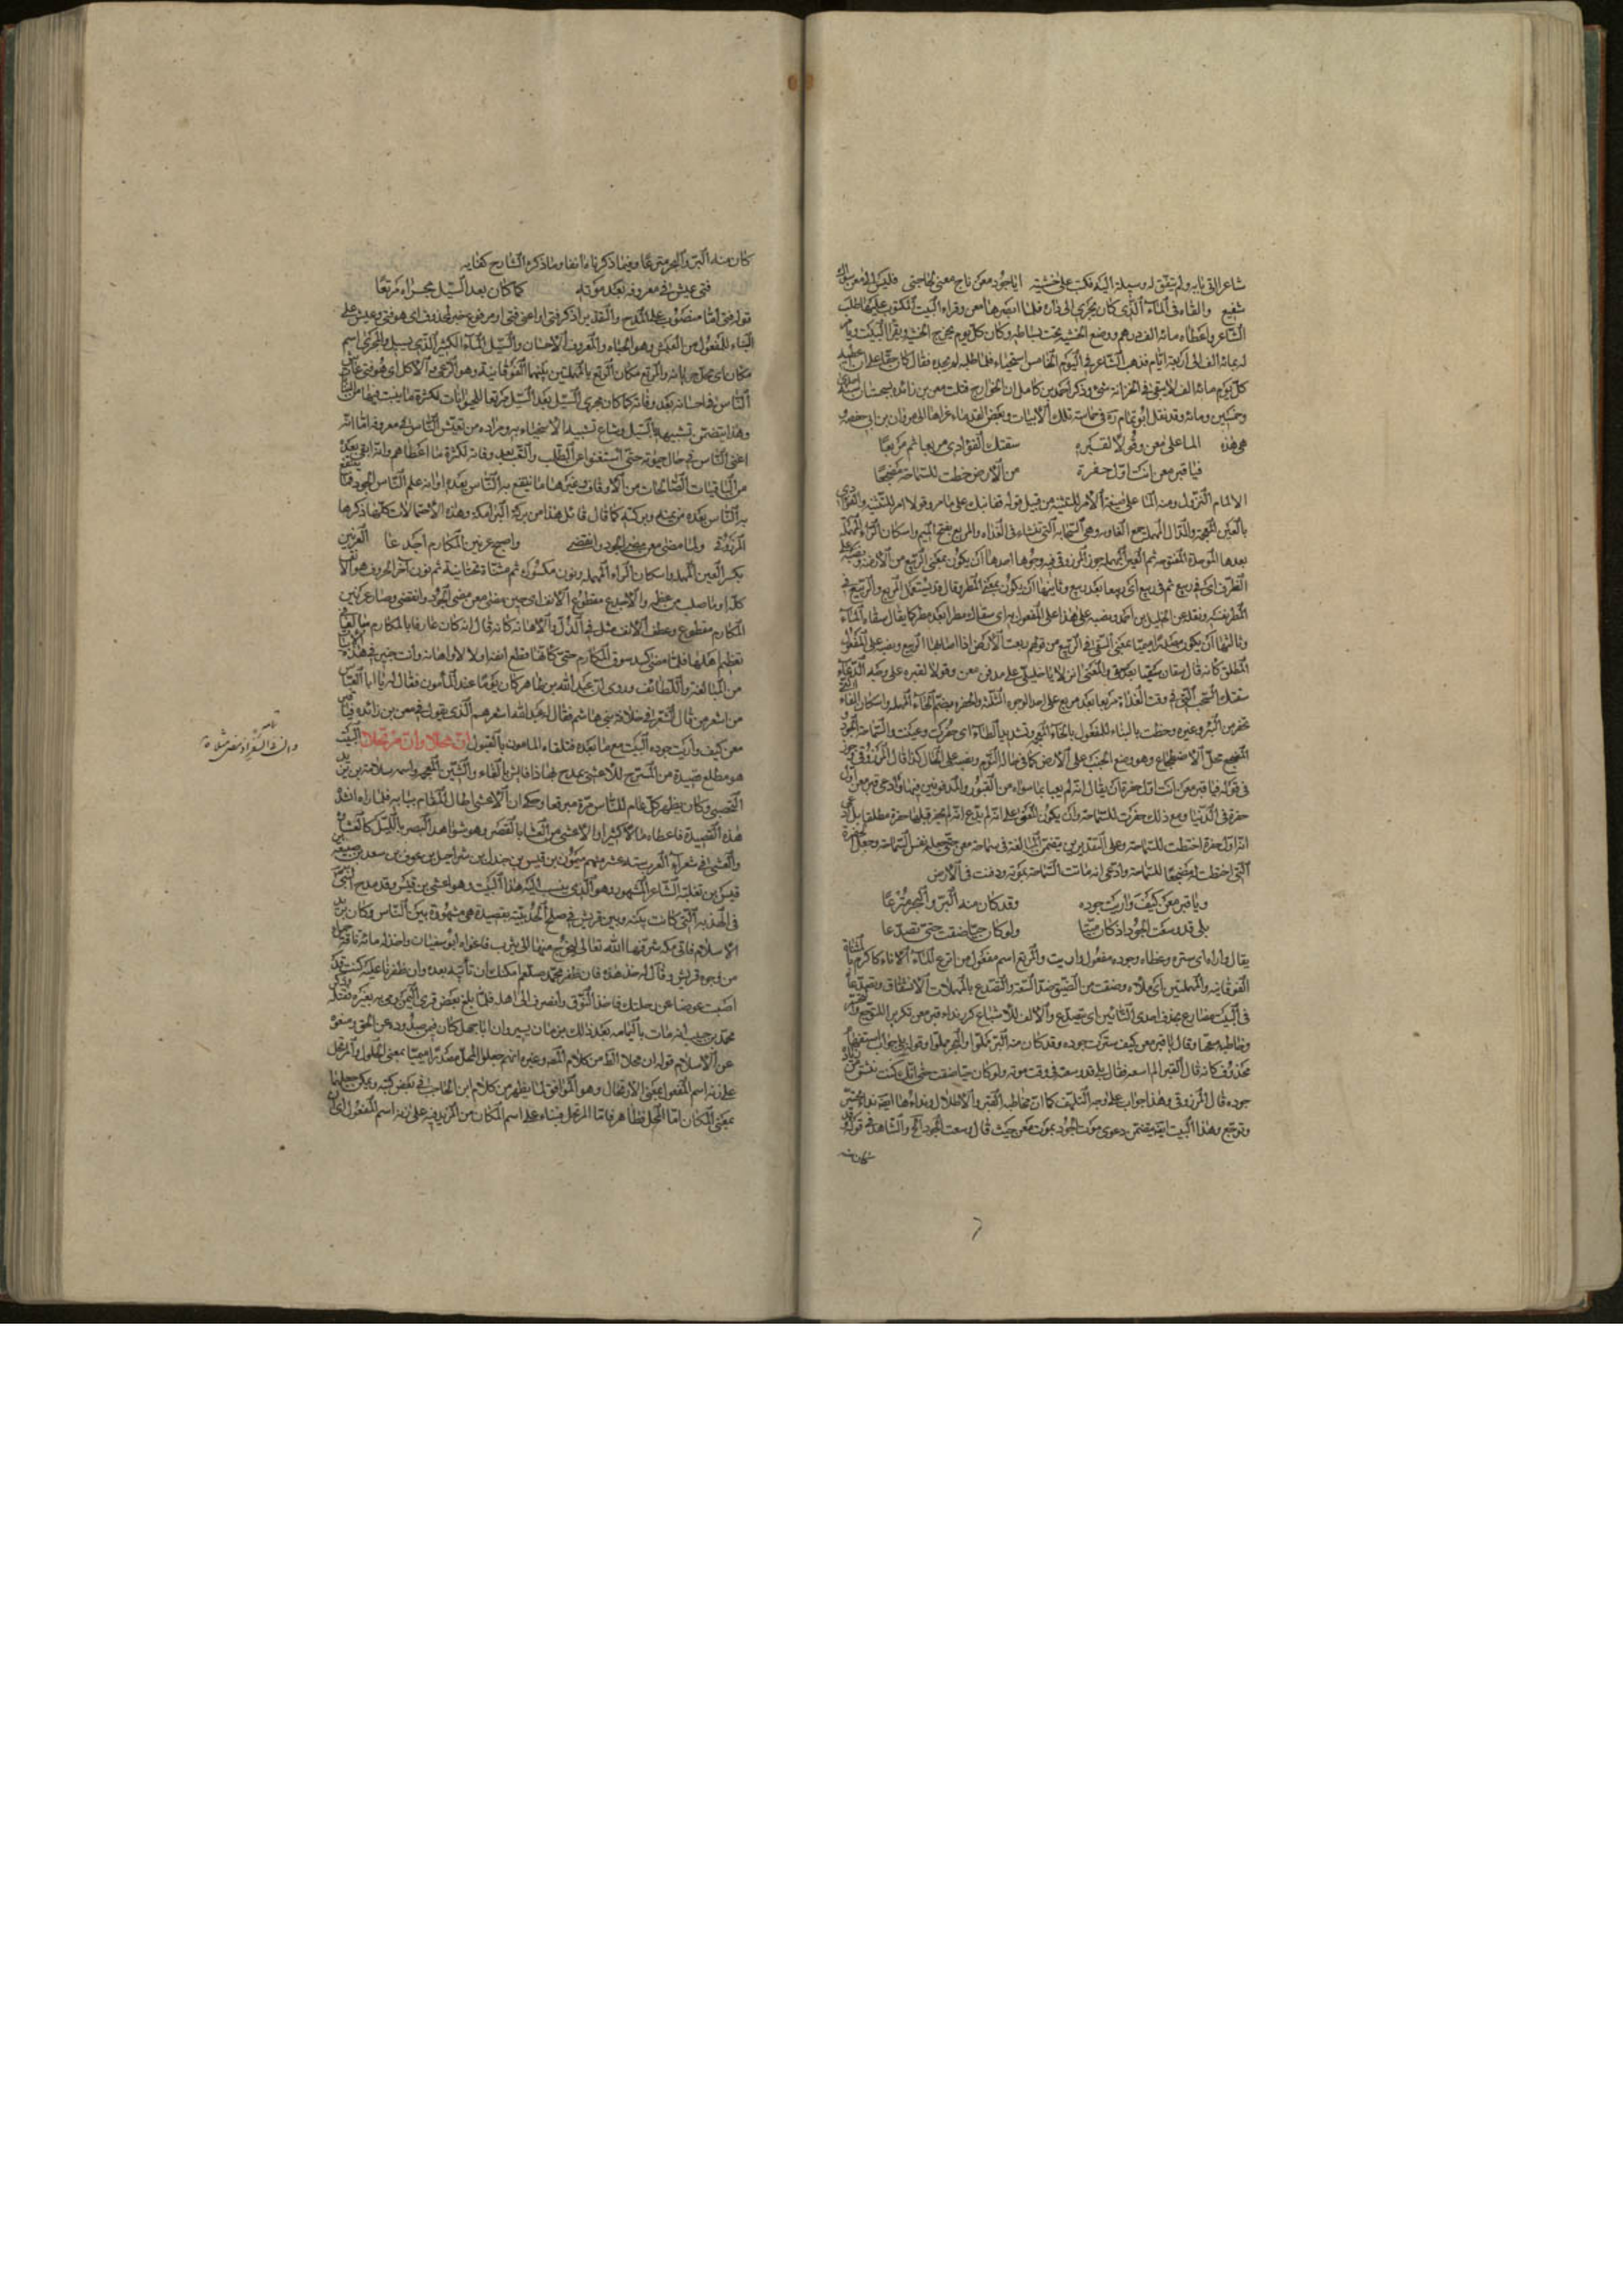 شاعرا اتى بابه ولم يتفق له وسيلة اليه فكتب على خشبته ايا جود معن ناج معنى بحاجتى فليس الى معن سواك
شفيع والقاه فى الماء الذى كان يجرى الى داره فلما ابصرها معن وقراء البيت المكتوب عليها طلب
الشاعر واعطاه مائة الف درهم ووضع الخشبة تحت بساطه وكان كل يوم يخرج الخشبة ويقرأ البيت
له بمائة الف الى اربعة ايام فذهب الشاعر فى اليوم الخامس استحياء فلما طلبه لم يجده فقال كان حقا على ان اعطيه
كل يوم مائة الف لا يبقى فى الخزانة شئ وذكر احمد بن كامل ان الخوارج قتلت معن بن زائدة بسجستان سنة
وخمسين ومائة وقد نقل ابو تمام فى حماسته تلك الابيات وبعض القدماء عزاها الى مروان بن ابى حفصة
هى هذه الما على معن وقولا لقبره سقتك الغوادى مربعا ثم مربعا
فيا قبر معن انت اول حفرة من الارض خطت للسماحة مضجعا
الالمام النزول ومنه الما على صيغة الامر للتثنية من قبيل قوله قفا نبك على ما مر وقولا امر للتثنية والغوادى
بالغين المعجمة والدال المهملة جمع الغادية وهى السحابة التى تنشاء فى الغداة والمربع بفتح الميم واسكان الراء المهملة
بعدها الموحدة المفتوحة ثم العين المهملة جوز المرزوقى فيه وجوها احدها ان يكون بمعنى الربيع من الارض ونصبه على
الظرف اى فى ربيع ثم فى ربيع اى ربيعا بعد ربيع وثانيها ان يكون بمعنى المطر وقال قد يستعمل المربع والربيع فى
المطر نفسه ونقله عن الخليل بن احمد ونصبه على هذا على المفعول به اى سقاك مطرا بعد مطر كما يقال سقاه الماء
وثالثها ان يكون مصدرا ميميا بمعنى السقى فى الربيع من قولهم ربعت الارض اذا اصابها الربيع ونصبه على المفعول
المطلق كانه قال سقان سقيا بعد سقى والمعنى انزلا يا خليلى على مدفن معن وقولا لقبره على وجه الدعاء
سقتك السحب التى فى وقت الغداة مربعا بعد مربع على احد الوجوه الثلثة والحفرة بضم الحاء المهملة واسكان الفاء
تحفر من البئر وغيره وخطت بالبناء للمفعول بالخاء المعجمة وتشديد الطاء اى حفرت وعينت والسماحة الجود
المضجع محل الاضطجاع وهو وضع الجنب على الارض كما فى حالة النوم ونصبه على الحال كذا قال المرزوقى
فى قوله فيا قبر معن انت اول حفرة ان يقال انه لم يعبا بما سواه من القبور والمدفونين فيها وادعى قبر معن اول
حفرة فى الدنيا ومع ذلك حفرت للسماحة وان يكون المعنى على انه لم يدع انه لم يحفر قبلها حفرة مطلقا بل ادعى
انه اول حفرة اختطت للسماحة وعلى التقديرين يتضمن المبالغة فى سماحة معن حتى جعله نفس السماحة وجعل الحفرة
التى اختطت له مضجعا للسماحة وادعى انه ماتت السماحة بموته ودفنت فى الارض
ويا قبر معن كيف واريت جوده وقد كان منه البر والبحر مترعا
بلى قد وسعت الجود اذ كان ميتا ولو كان حيا ضقت حتى تصدعا
يقال واراه اى ستره وغطاه وجوده مفعول واريت والمترع اسم مفعول من اترع الاناء كاكرم بالمثناة
الفوقانية والمهملتين اى ملأه وضقت من الضيق ضد السعة والتصدع بالمهملات الانشقاق وتصدعا
فى البيت مضارع بحذف احدى التائين اى تتصدع والالف للاشباع كرر نداء قبر معن تكريرا للتفجع
وخاطبه متعجبا وقال يا قبر معن كيف سترت جوده وقد كان منه البر مملوا والبحر مملوا وقوله بلى جواب استفهام
محذوف كانه قال القبر الم اسعه فقال بلى قد وسعته فى وقت موته ولو كان حيا ضقت حتى انك كنت تنشق من
جوده قال المرزوقى وهذا جواب على وجه التلهف كما ان مخاطبة القبر والاطلال ونداءها ايضا نداء تحسر
وتوجع وهذا البيت ايضا يتضمن دعوى موت الجود بموت معن حيث قال وسعت الجود الخ والشاهد فى قوله
كان منه
كان منه البر والبحر مترعا وفيما ذكرناه انفا وما ذكره الشارح كفاية
فتى عيش فى معروفه بعد موته كما كان بعد السيل مجراه مرتعا
قوله فتى اما منصوب على المدح والتقدير اذكر فتى او اعنى فتى او مرفوع خبر لمحذوف اى هو فتى وعيش على
البناء للمفعول من العيش وهو الحياة والمعروف الاحسان والسيل الماء الكثير الذى يسيل والمجرى اسم
مكان اى محل جريانه والمرتع مكان الرتع بالمهملتين بينهما الفوقانية وهو الرعى والاكل اى هو فتى عاش
الناس فى احسانه بعد وفاته كما كان مجرى السيل بعد السيل مرتعا للحيوانات لكثرة ما ينبت فيها من النبات
وهذا يتضمن تشبيهه بالسيل وشاع تشبيه الاسخياء به ومراده من تعيش الناس فى معروفه اما انه
اغنى الناس فى حال حيوته حتى استغنوا عن الطلب والتعب بعد وفاته لكثرة ما اعطاهم وانه ابقى بعده
من الباقيات الصالحات من الاوقاف وغيرها ما ينتفع به الناس بعده او انه علم الناس الجود فما ينتفع
به الناس بعده من يمنه وبركته كما قال قائل هذا من بركة البرامكة وهذه الاحتمالات كلها ذكرها
المرزوقى ولما مضى معن مضى الجود وانقضى واصبح عرنين المكارم اجدعا العرنين
بكسر العين المهملة واسكان الراء المهملة ونون مكسورة ثم مثناة تحتانية ثم نون آخر الحروف هو الانف
كله او ما صلب من عظمه والاجدع مقطوع الانف اى حين مضى معن مضى الجود وانقضى وصار عرنين
المكارم مقطوع وعطف الانف مثل فى الذل والاهانة كانه قال انه كان عارفا بالمكارم مبالغا فى
تعظيم اهلها فلما مضى كسد سوق المكارم حتى كانها قطع انفها ولا لاواهانة وانت خبير فى هذه الابيات
من المبالغة واللطائف وروى ان عبد الله بن طاهر كان يوما عند المأمون فقال له يا ابا العباس
من اشعر من قال الشعر فى خلافة بنى هاشم فقال له عبد الله اشعرهم الذى يقول فى معن بن زائدة فيا قبر
معن كيف واريت جوده البيت مع ما بعده فتلقاه المامون بالقبول ان محلا وان مرتحلا البيت
هو مطلع قصيدة من المنسرح للاعشى يمدح بها ذا فائش بالفاء والشين المعجمة واسمه سلامة بن يزيد
اليحصبى وكان يظهر كل عام للناس مرة مبرقعا وحكى ان الاعشى اطال المقام ببابه فلما راه انشد
هذه القصيدة فاعطاه مالا كثيرا والاعشى من العشا بالقصر وهو سوء البصر بالليل كالعشاوة
والعشى فى شعراء العرب ستة عشر منهم ميمون بن قيس بن جندل بن شراحيل بن عوف بن سعد بن ضبيعة
قيس بن ثعلبة الشاعر المشهور وهو الذى ينسب اليه هذا البيت وهو اعشى بن قيس وقد مدح النبى
فى الهدنة التى كانت بينه وبين قريش فى صلح الحديبية بقصيدة هى مشهورة بين الناس وكان يريد
الاسلام فاتى مكة شرفها الله تعالى ليخرج منها الى يثرب فاغواه ابو سفيان واخذ له مائة ناقة حمراء
من وجوه قريش وقال له خذ هذه فان ظفر محمد صلعم امكنك ان تأتيه بعده وان ظفرنا عليه كنت قد
اصبت عوضا عن رحلتك فاخذ النوق وانصرف الى اهله فلما بلغ بعض قرى اليمن رمى به بعيره فقتله
محمد بن حبيب انه مات باليمامة بعد ذلك بزمان يسير وان ابا جهل كان فيمن يصدوده عن الحق ومنعوه
عن الاسلام قوله ان محلا الظ من كلام المصه وغيره انهم جعلوا المحل مصدرا ميميا بمعنى الحلول والمرتحل
على زنة اسم المفعول بمعنى الارتحال وهو الموافق لما يظهر من كلام ابن الحاجب فى بعض كتبه ويمكن جعلها
بمعنى المكان اما المحل فظاهر فاما المرتحل فبناء على اسم المكان من المزيد فيه على زنة اسم المفعول اى